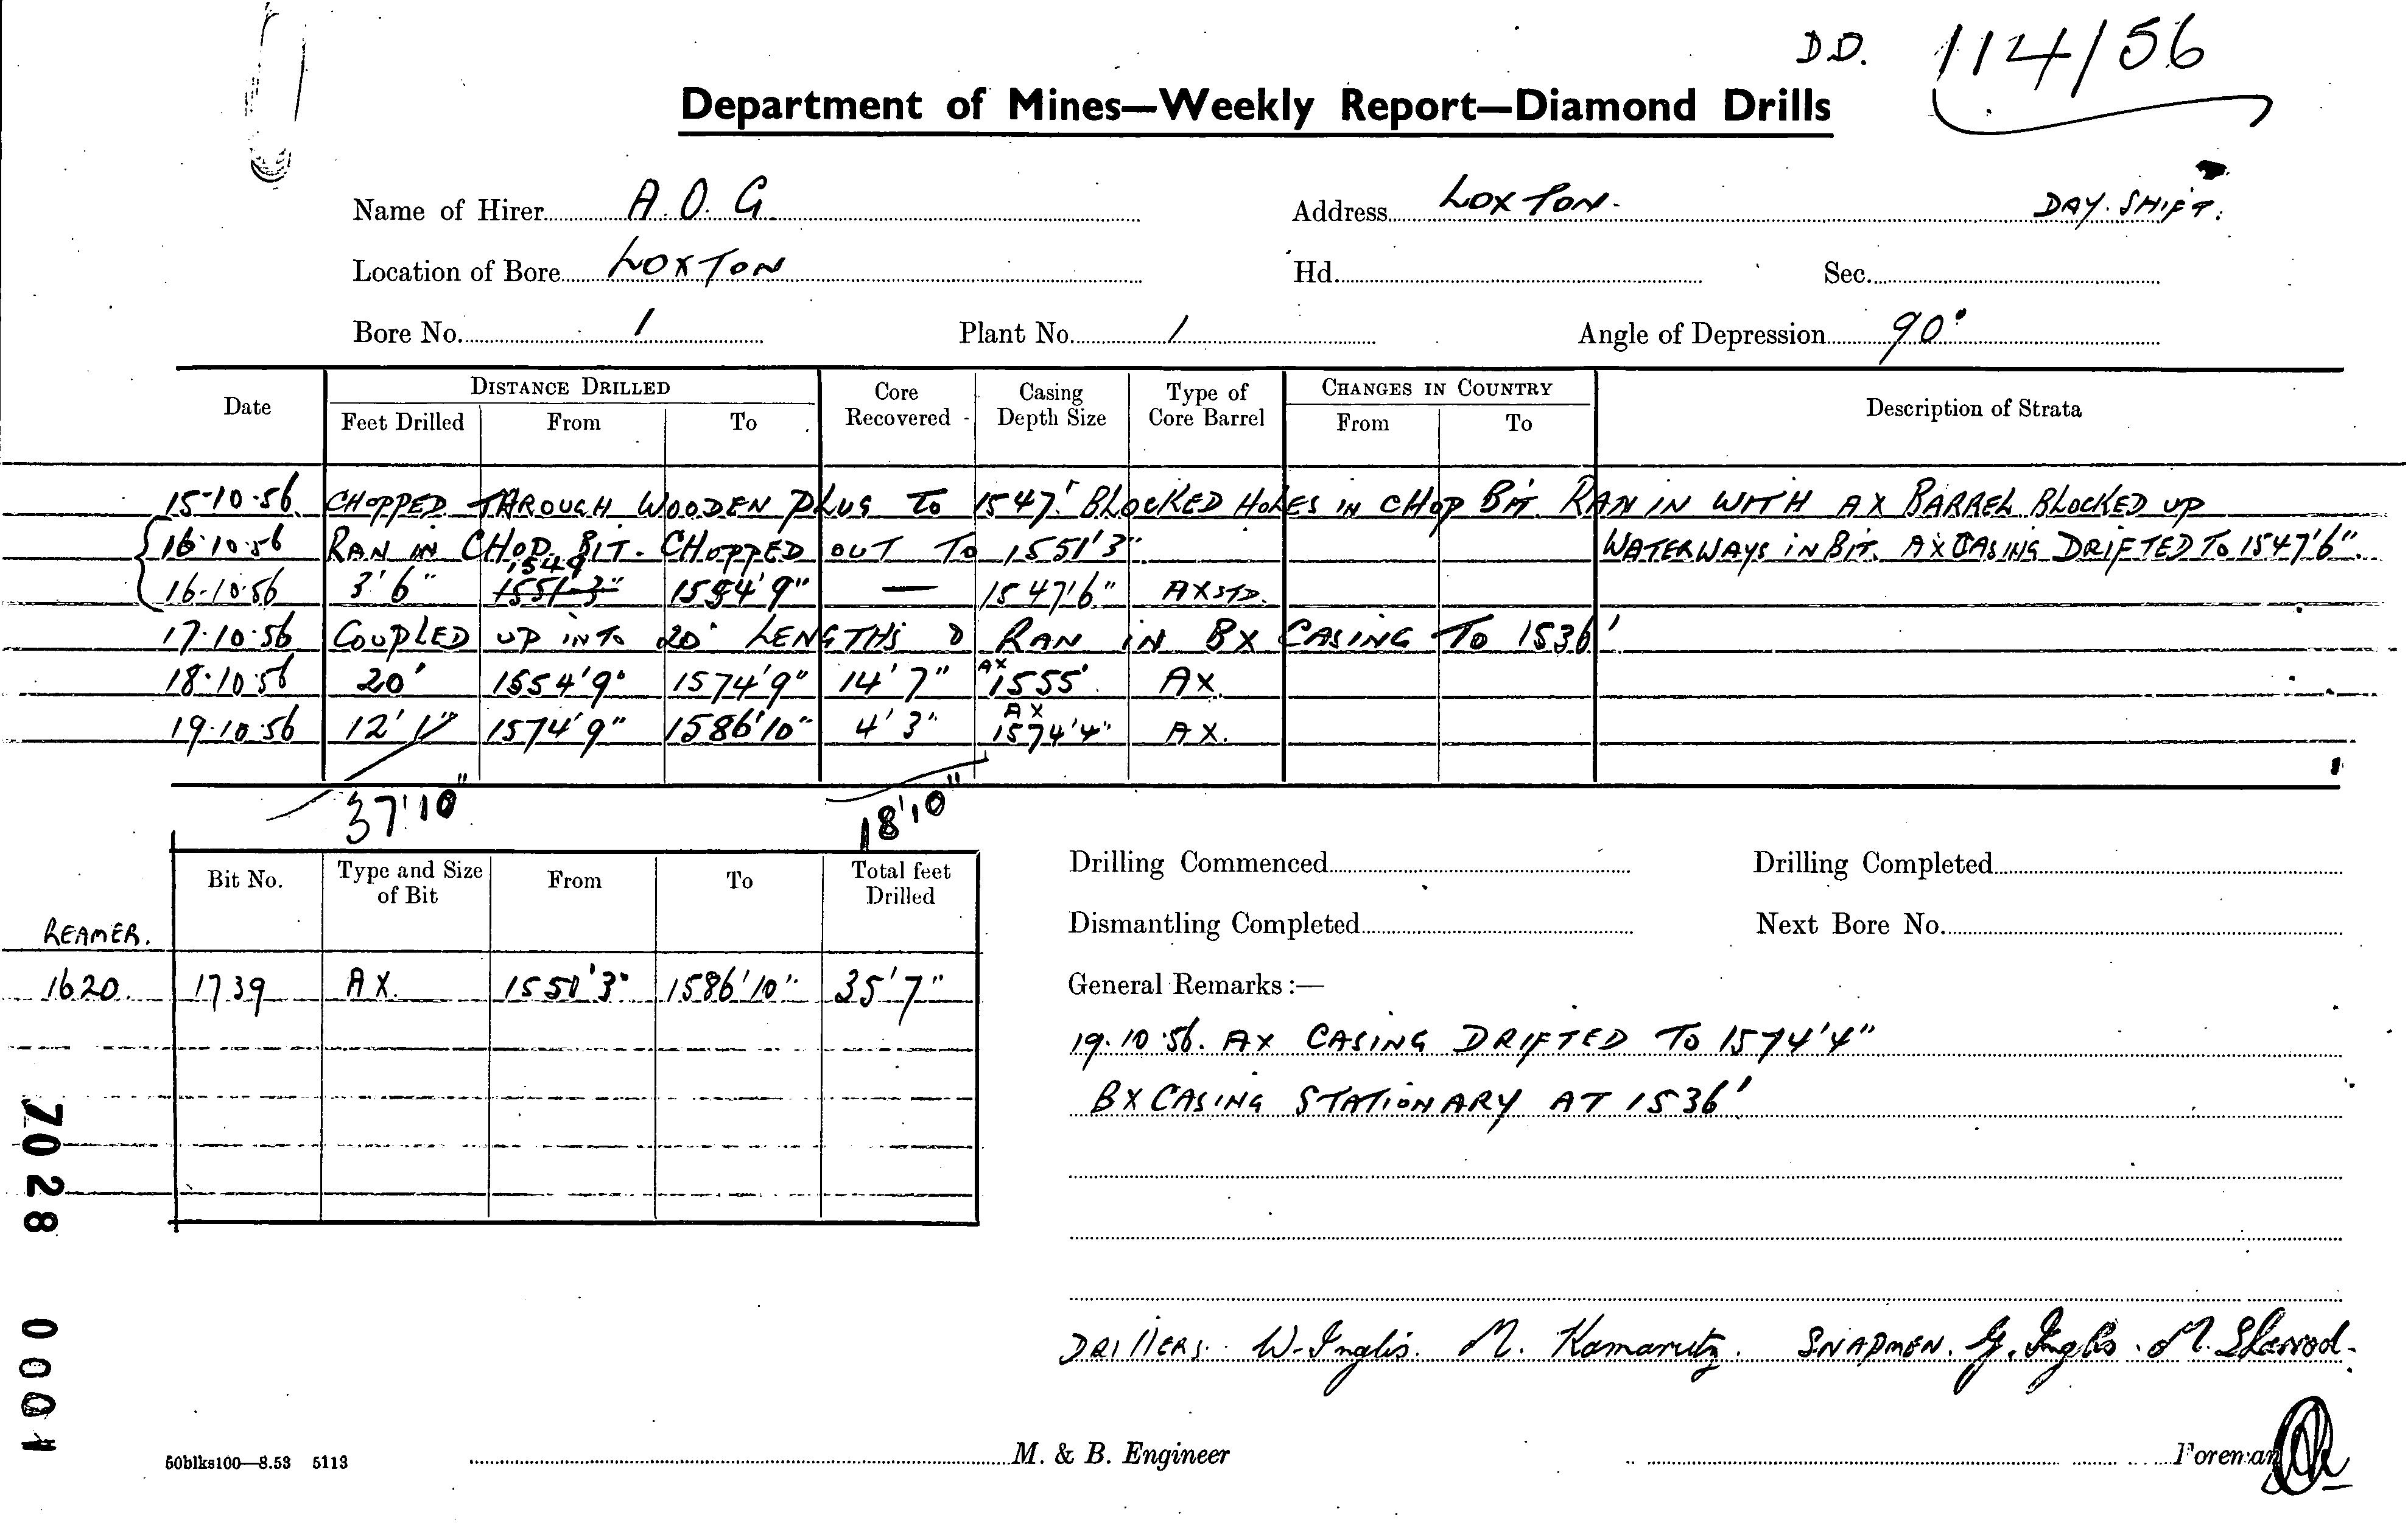 DD. 114/56
Department of Mines—Weekly Report—Diamond Drills
Name of Hirer A.O.G. Address LOXTON. DAY. SHIFT.
Location of Bore LOXTON Hd. Sec.
Bore No. 1 Plant No. 1 Angle of Depression 90°
Date DISTANCE DRILLED Core Recovered Casing Depth Size Type of Core Barrel CHANGES IN COUNTRY Description of Strata
Feet Drilled From To From To
15-10-56 CHOPPED THROUGH WOODEN PLUG TO 1547' BLOCKED HOLES IN CHOP BIT. RAN IN WITH AX BARREL BLOCKED UP
16.10.56 RAN IN CHOP. BIT. CHOPPED OUT TO 1551'3" WATERWAYS IN BIT. AX CASING DRIFTED TO 1547'6".
1549
16-10-56 3'6" 1551-3" 1554'9" — 1547'6" AX STD.
17.10.56 COUPLED UP INTO 20' LENGTHS & RAN IN BX CASING TO 1536'
18.10.56 20' 1554'9" 1574'9" 14'7" AX 1555' AX.
19.10.56 12'1" 1574'9" 1586'10" 4'3" AX 1574'4" AX.
37'10" 18'10"
Bit No. Type and Size of Bit From To Total feet Drilled
REAMER.
1620. 1739 AX. 1551'3" 1586'10" 35'7"
Drilling Commenced Drilling Completed
Dismantling Completed Next Bore No.
General Remarks :—
19.10.56. AX CASING DRIFTED TO 1574'4"
BX CASING STATIONARY AT 1536'
DRILLERS. W. Inglis. M. Kamarutz. SNAPMEN. G. Inglis. M. Sherrod.
7028 0001
50blks100—8.53 5113 M. & B. Engineer Foreman